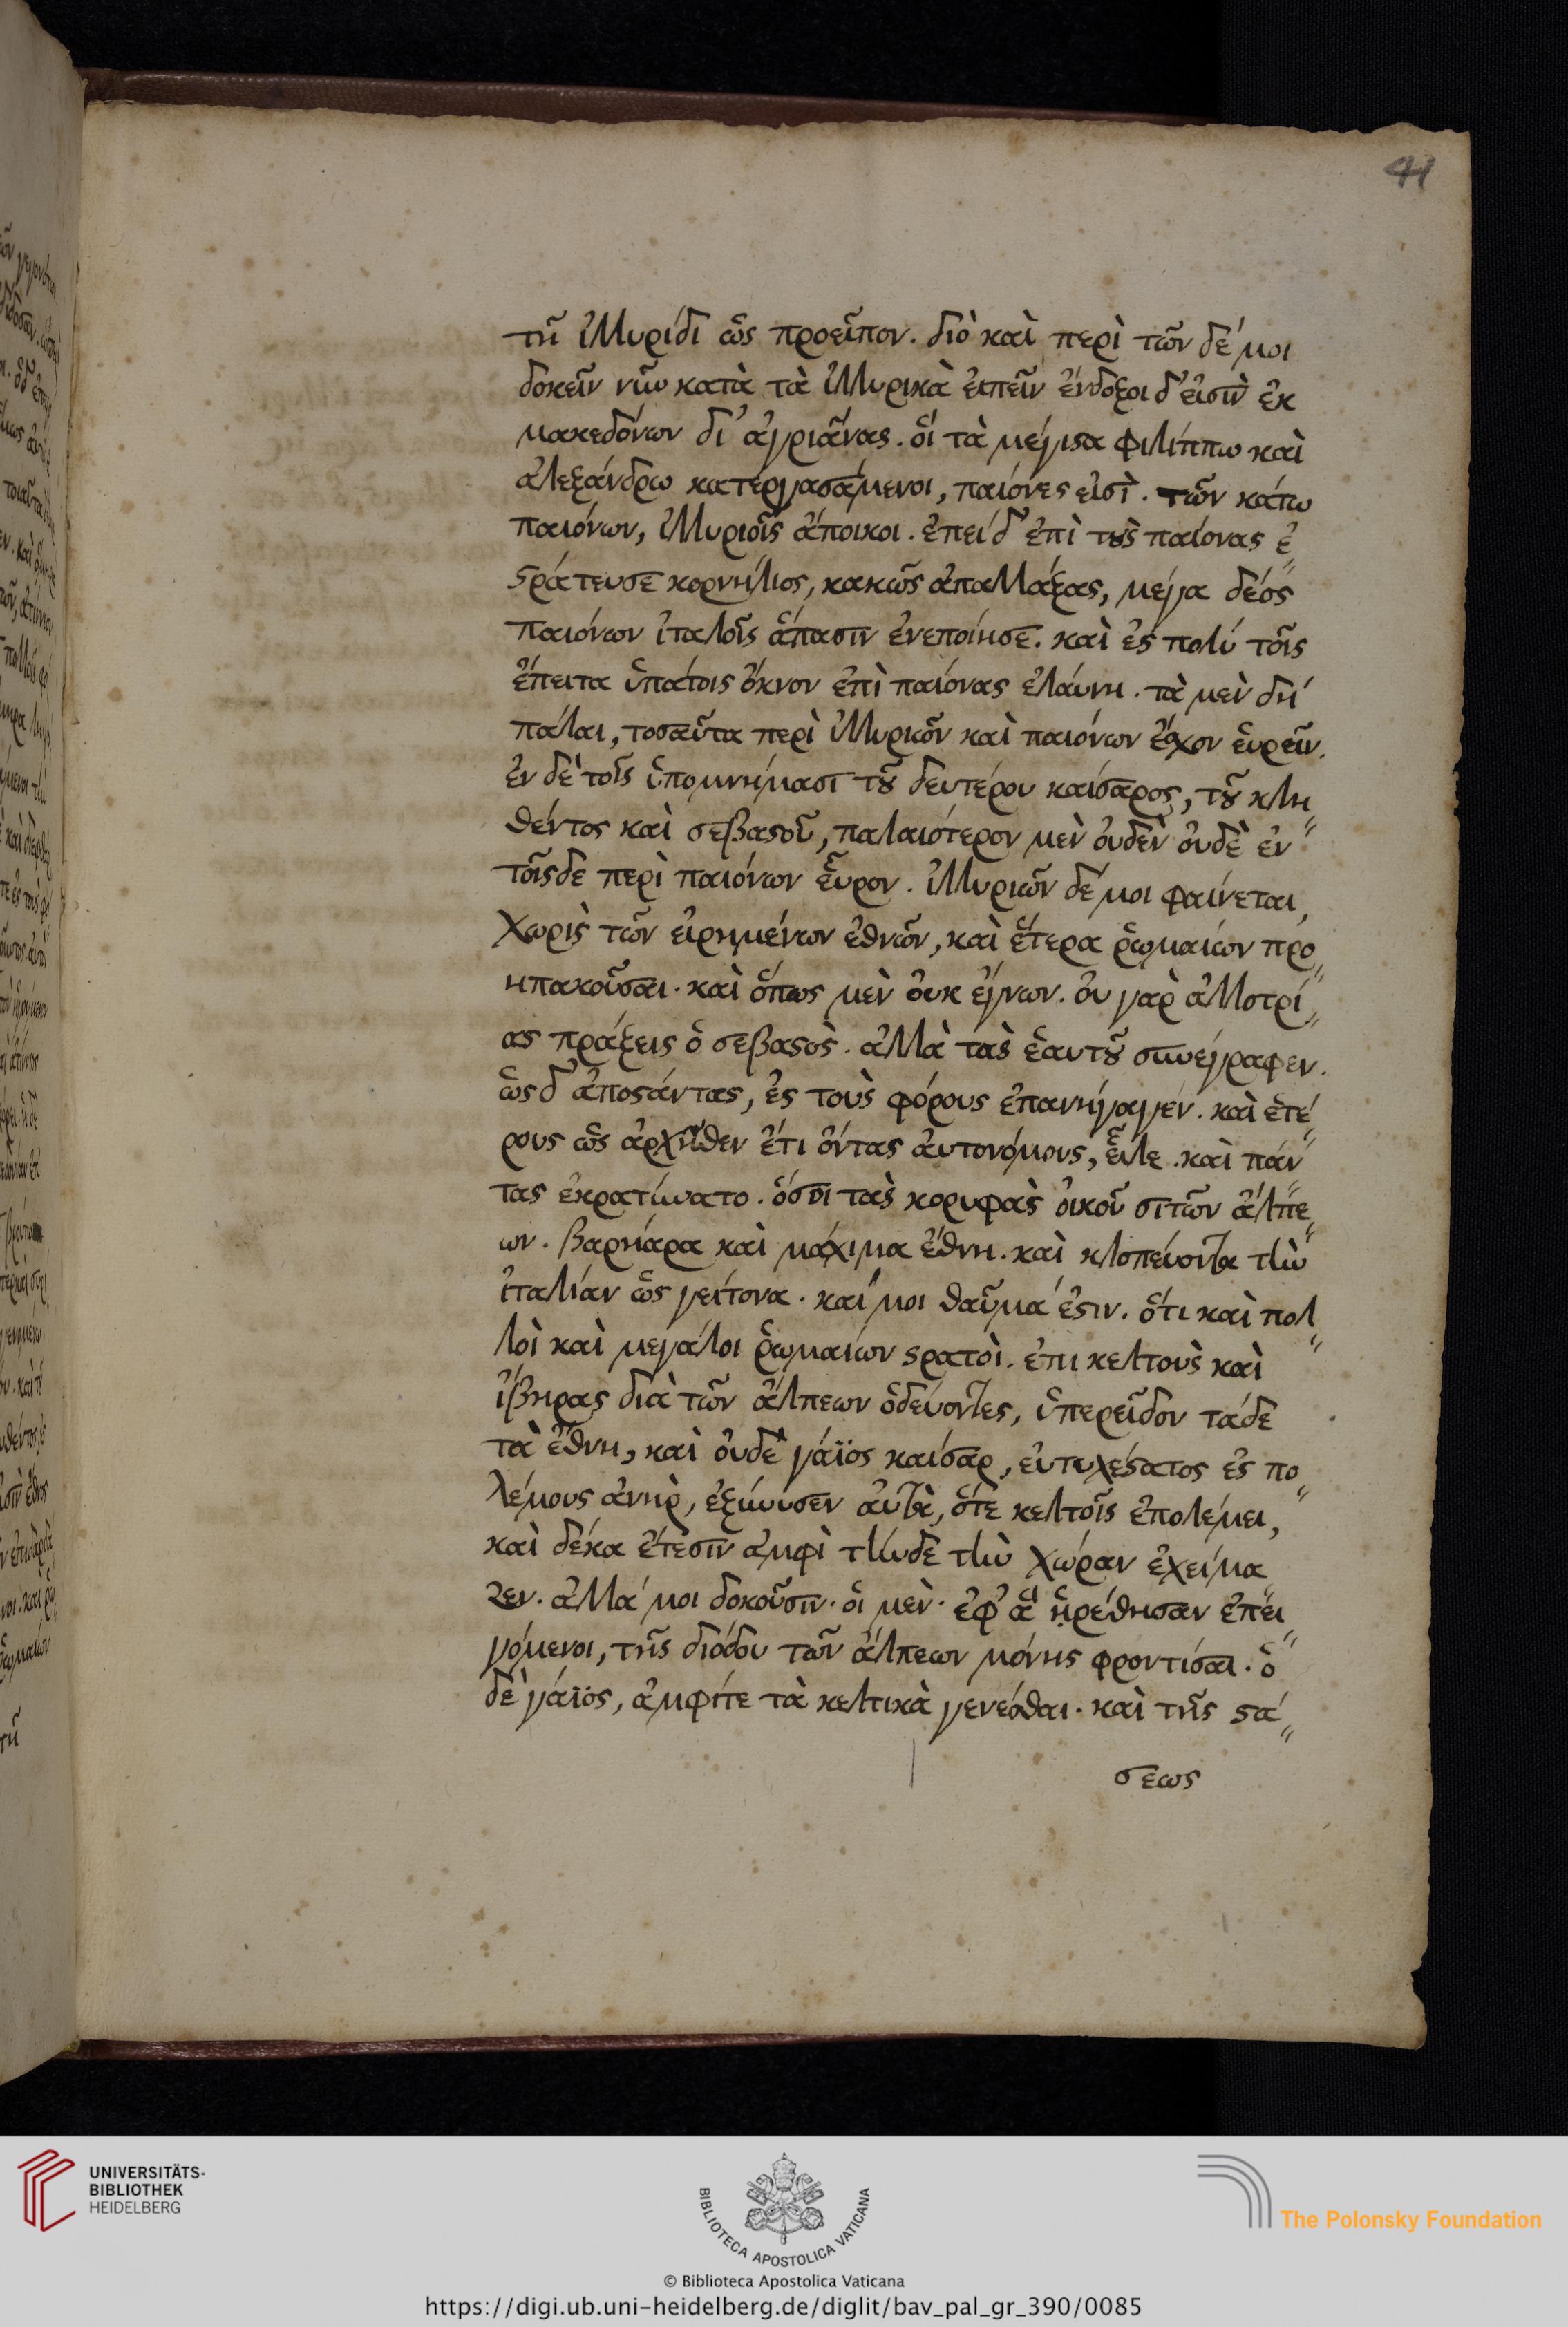 41
τῆ ἰλλυρίδι ὥς προεῖπον. διὸ καὶ περὶ τῶν δέ μοι
δοκεῖν νῦν κατὰ τὰ ἰλλυρικὰ ἐιπεῖν ἔνδοξοι δ' ἐισὶν ἐκ
μακεδόνων δι' ἀγριᾶνας. ὅι τὰ μέγιστα φιλίππω καὶ
ἀλεξάνδρω κατεργασάμενοι, παιόνες εἰσὶ. τῶν κάτω
παιόνων, ἰλλυριοῖς ἄποικοι. ἐπεὶ δ' ἐπὶ τοὺς παίονας ἐ
στράτευσε κορνήλιος, κακῶς ἀπαλλάξας, μέγα δέος
παιόνων ἰταλοῖς ἅπασιν ἐνεποίησε. καὶ ἐς πολύ τοῖς
ἔπειτα ὑπάτοις ὄκνον ἐπὶ παίονας ἐλάυνη. τὰ μὲν δή
πάλαι, τοσαῦτα περὶ ἰλλυρικῶν καὶ παιόνων ἔσχον ἑυρεῖν.
ἐν δὲ τοῖς ὑπομνήμασι τοῦ δευτέρου καίσαρος, τοῦ κλη
θέντος καὶ σεβαστοῦ, παλαιότερον μὲν ὀυδὲν ὀυδὲ ἐν
τοῖσδε περὶ παιόνων εὗρον. ἰλλυριῶν δέ μοι φαίνεται,
χωρὶς τῶν εἰρημένων ἐθνῶν, καὶ ἕτερα ῥωμαίων προ
ηπακοῦσαι. καὶ ὅπως μὲν ὀυκ ἔγνων. ὀυ γὰρ ἀλλοτρί
ας πράξεις ὁ σεβαστὸς. ἀλλὰ τὰς ἑαυτοῦ συνέγραφεν.
ὡς δ' ἀποστάντας, ἐς τοὺς φόρους ἐπανήγαγεν. καὶ ἑτέ
ρους ὥς ἀρχῆθεν ἔτι ὄντας ἀυτονόμους, εἷλε. καὶ πάν
τας ἐκρατύνατο. ὅσοι τὰς κορυφὰς ὀικοῦ σι τῶν ἄλπε
ων. βαρκάρα καὶ μάχιμα ἔθνη. καὶ κλοπεύοντα τὴν
ἰταλίαν ὥς γείτονα. καί μοι θαῦμά ἐστιν. ὅτι καὶ πολ
λοὶ καὶ μεγάλοι ῥωμαίων στρατοὶ. ἐπι κελτοὺς καὶ
ἴβηρας διὰ τῶν ἄλπεων ὁδεύοντες, ὑπερεῖδον τάδε
τὰ ἔθνη, καὶ ὀυδὲ γάϊος καίσαρ, ἐυτυχέστατος ἐς πο
λέμους ἀνὴρ, ἐξήνυσεν ἀυτὰ, ὅτε κελτοῖς ἐπολέμει,
καὶ δέκα ἔτεσιν ἀμφὶ τήνδε τὴν χώραν ἐχείμα
ζεν. ἀλλά μοι δοκοῦσιν. ὁι μὲν. ἐφ' ἃ ἡρέθησαν ἐπει
γόμενοι, τῆς διόδου τῶν ἄλπεων μόνης φροντίσαι. ὁ
δὲ γάϊος, ἀμφίτε τὰ κελτικὰ γενέσθαι. καὶ τῆς στά
σεως
UNIVERSITÄTS-
BIBLIOTHEK
HEIDELBERG
BIBLIOTECA APOSTOLICA VATICANA
The Polonsky Foundation
© Biblioteca Apostolica Vaticana
https://digi.ub.uni-heidelberg.de/diglit/bav_pal_gr_390/0085